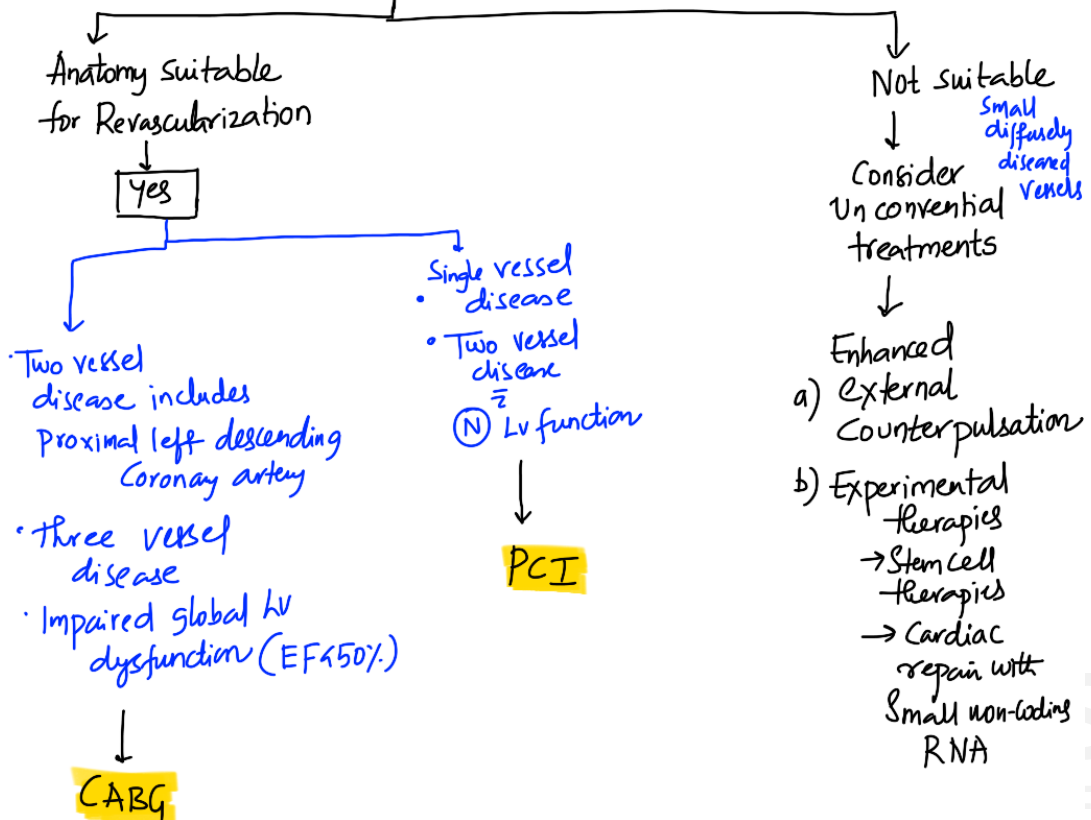 Anatomy suitable
for Revascularization
Yes
· Two vessel
disease includes
Proximal left descending
Coronay artery
· Three vessel
disease
· Impaired global LV
dysfunction (EF<50%)
CABG
Single vessel
· disease
• Two vessel
disease
c̄
Ⓝ LV function
PCI
Not suitable
Small
diffusely
diseased
vessels
Consider
Unconvential
treatments
Enhanced
a) external
Counterpulsation
b) Experimental
therapies
→ Stem cell
therapies
→ Cardiac
repair with
Small non-coding
RNA